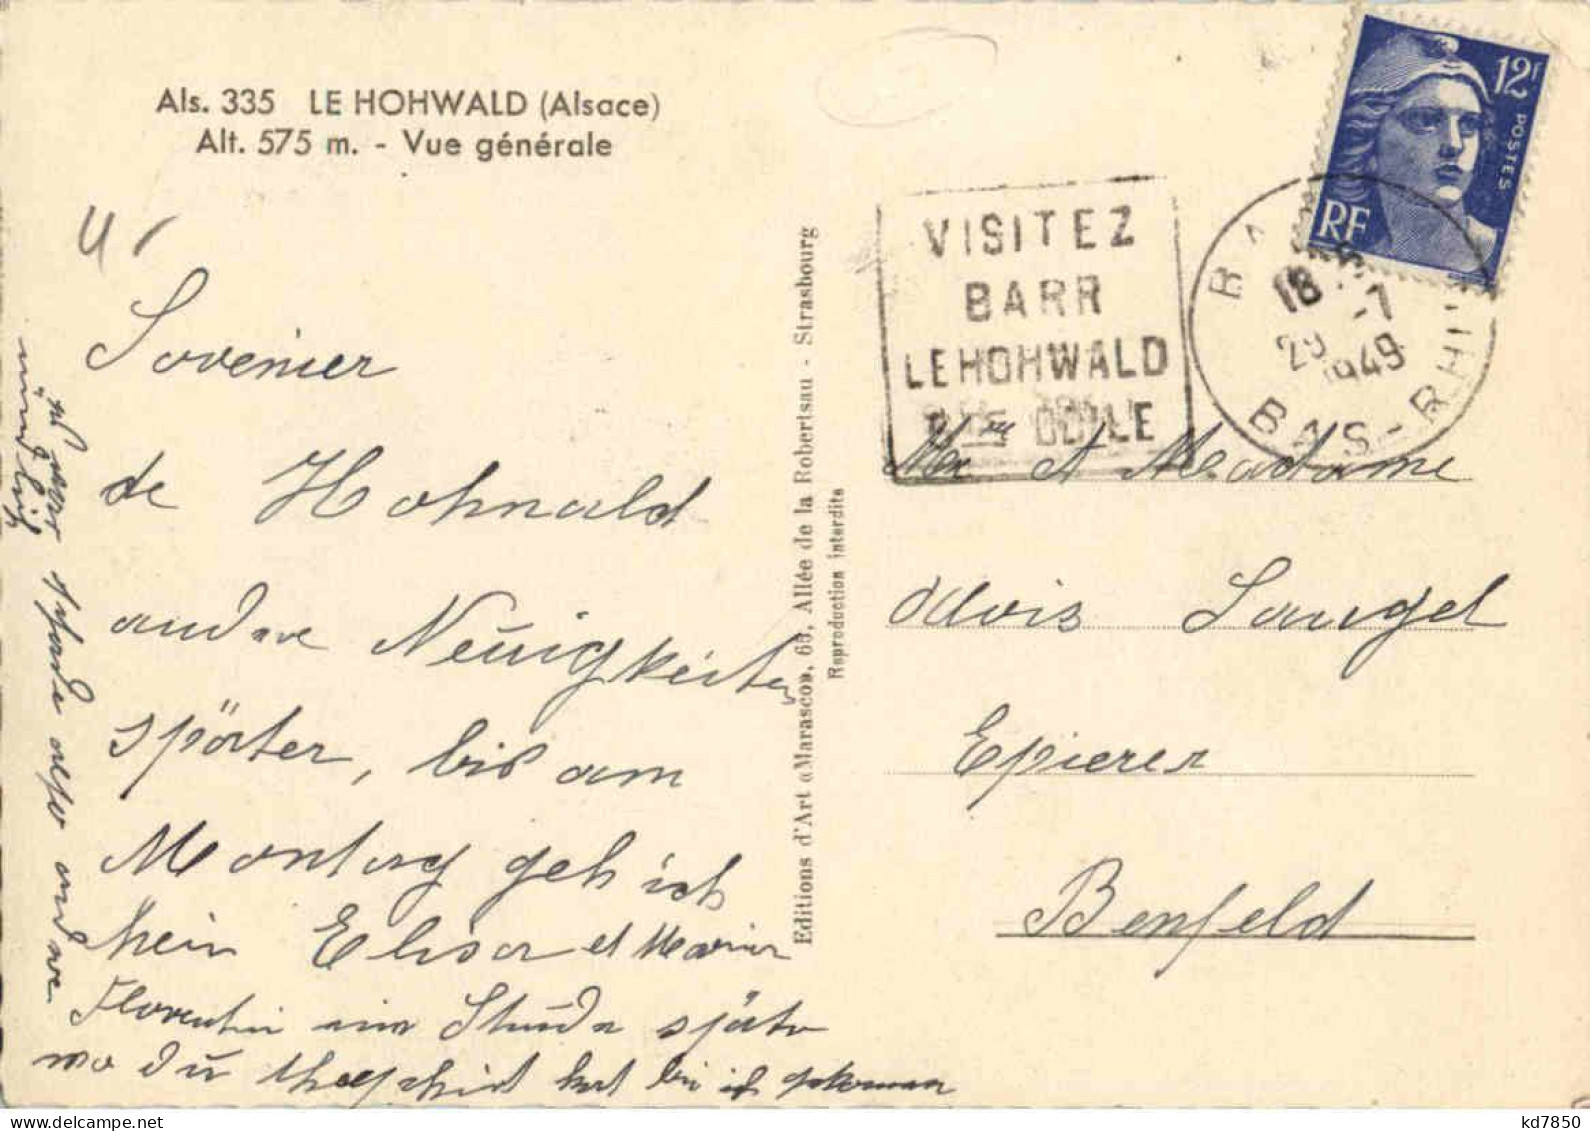 Als. 335 LE HOHWALD (Alsace)
Alt. 575 m. - Vue générale
Sovenier
de Hohwald
andere Neuigkeiten
später, bis am
Montag geh ich
heim Elisa et Maria
Florentin eine Stunde später
wo du
bin ich gekommen
mündlich
Editions d'Art aMarascon, 65, Allée de la Robertsau - Strasbourg
Reproduction interdite
VISITEZ
BARR
LE HOHWALD
STE ODILE
BARR
18
29 -7
1949
BAS-RHIN
12F
POSTES
RF
Mr et Madame
Alois Laugel
Epicerer
Benfeld
kd7850